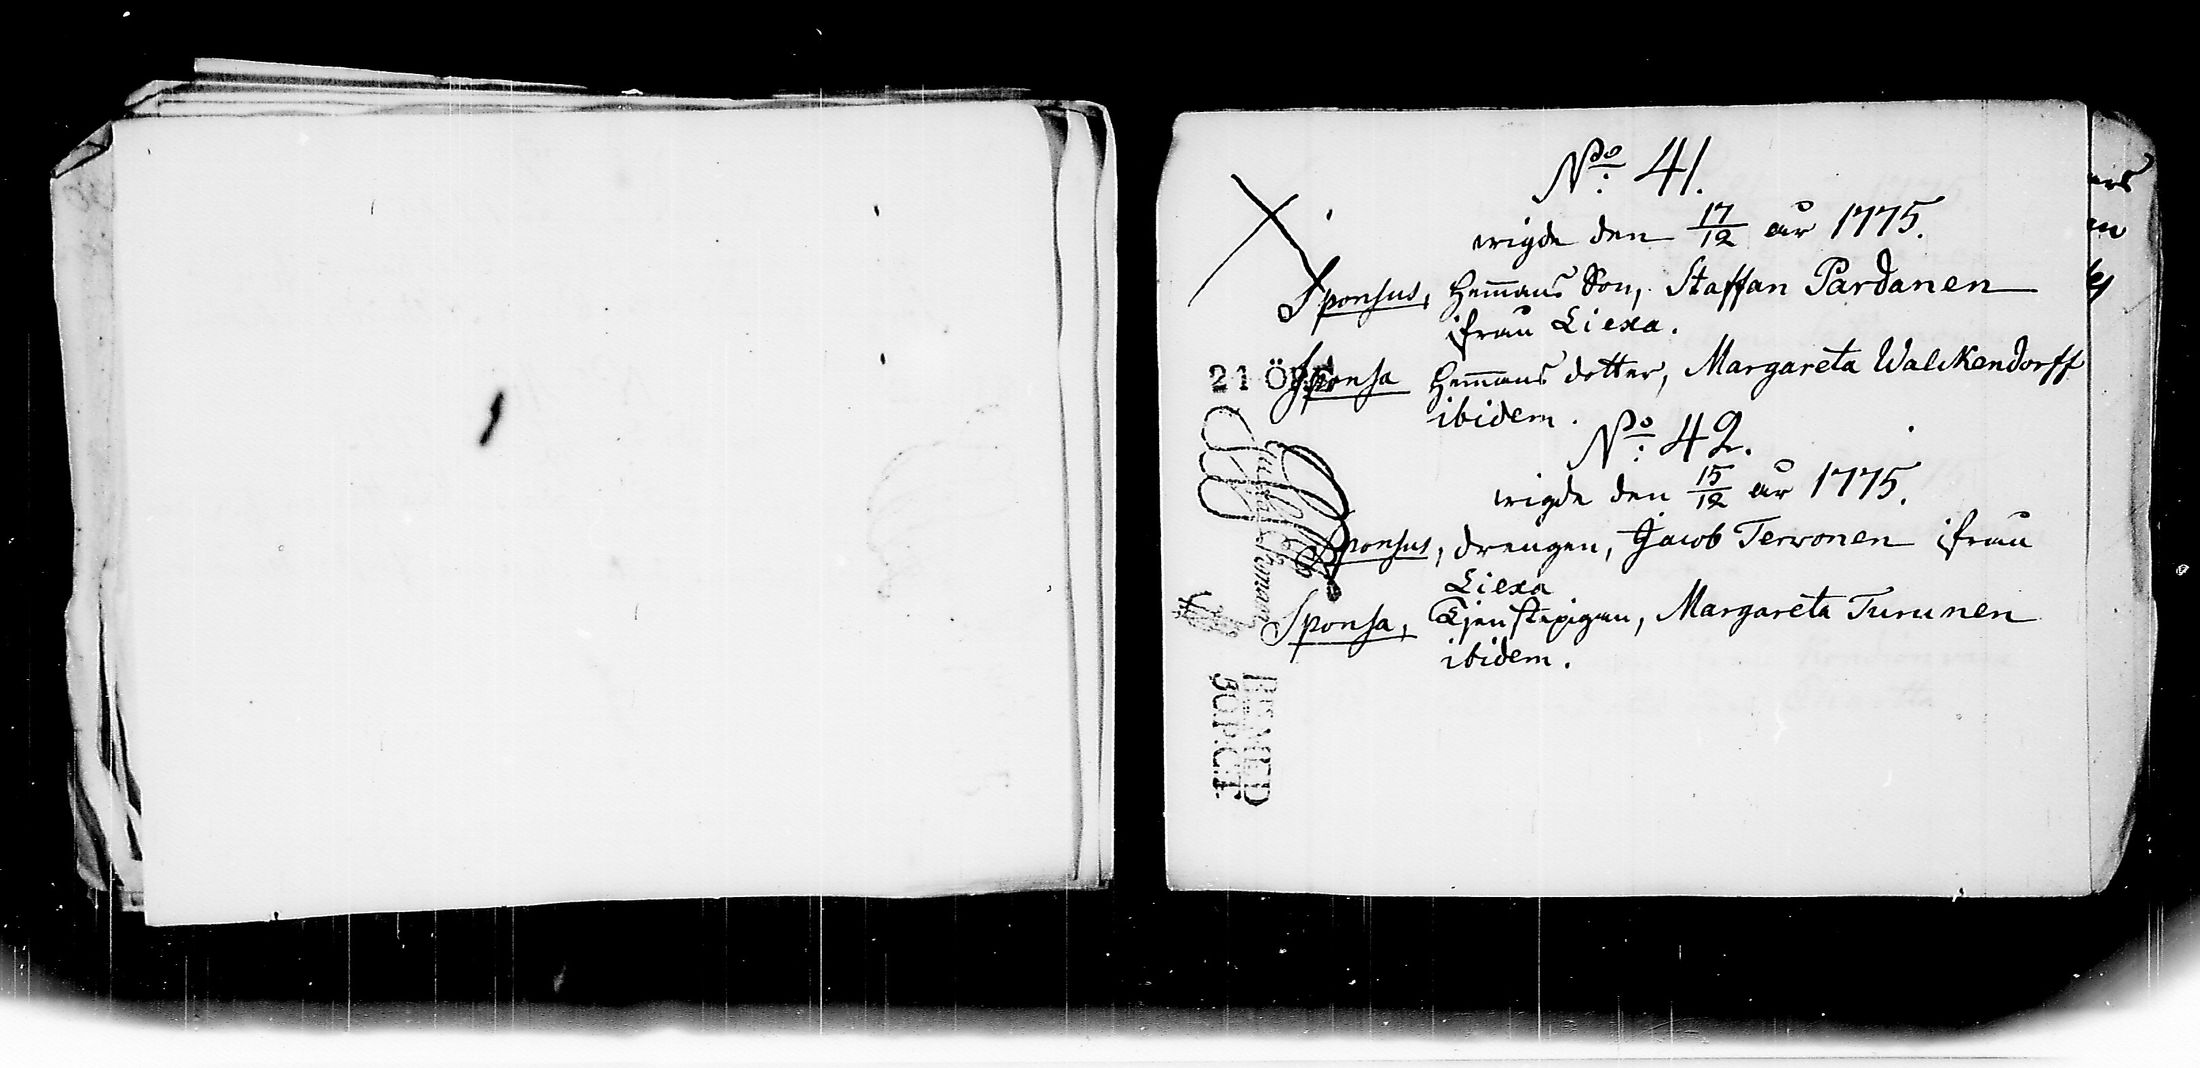 No: 41.
wigde den 17/12 år 1775.
Sponsus, Hem̄ans Son, Staffan Pardanen
ifrån Liexa.
21 ÖRE
Sponsa Hem̄ans dotter, Margareta Walckendorff
ibidem.
No: 42.
wigde den 15/12 år 1775.
Sponsus, drengen, Jacob Tervonen ifrån
Liexa
Sponsa, Tjenstepigan, Margareta Turunen
ibidem.